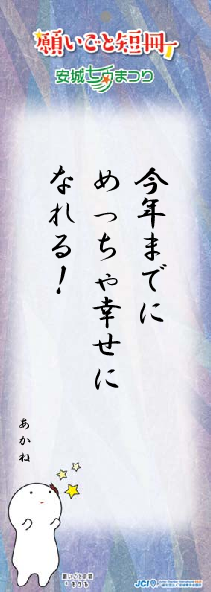 願いごと短冊
安城七夕まつり
今年までに
めっちゃ幸せに
なれる！
あかね
願いごと短冊
JCI